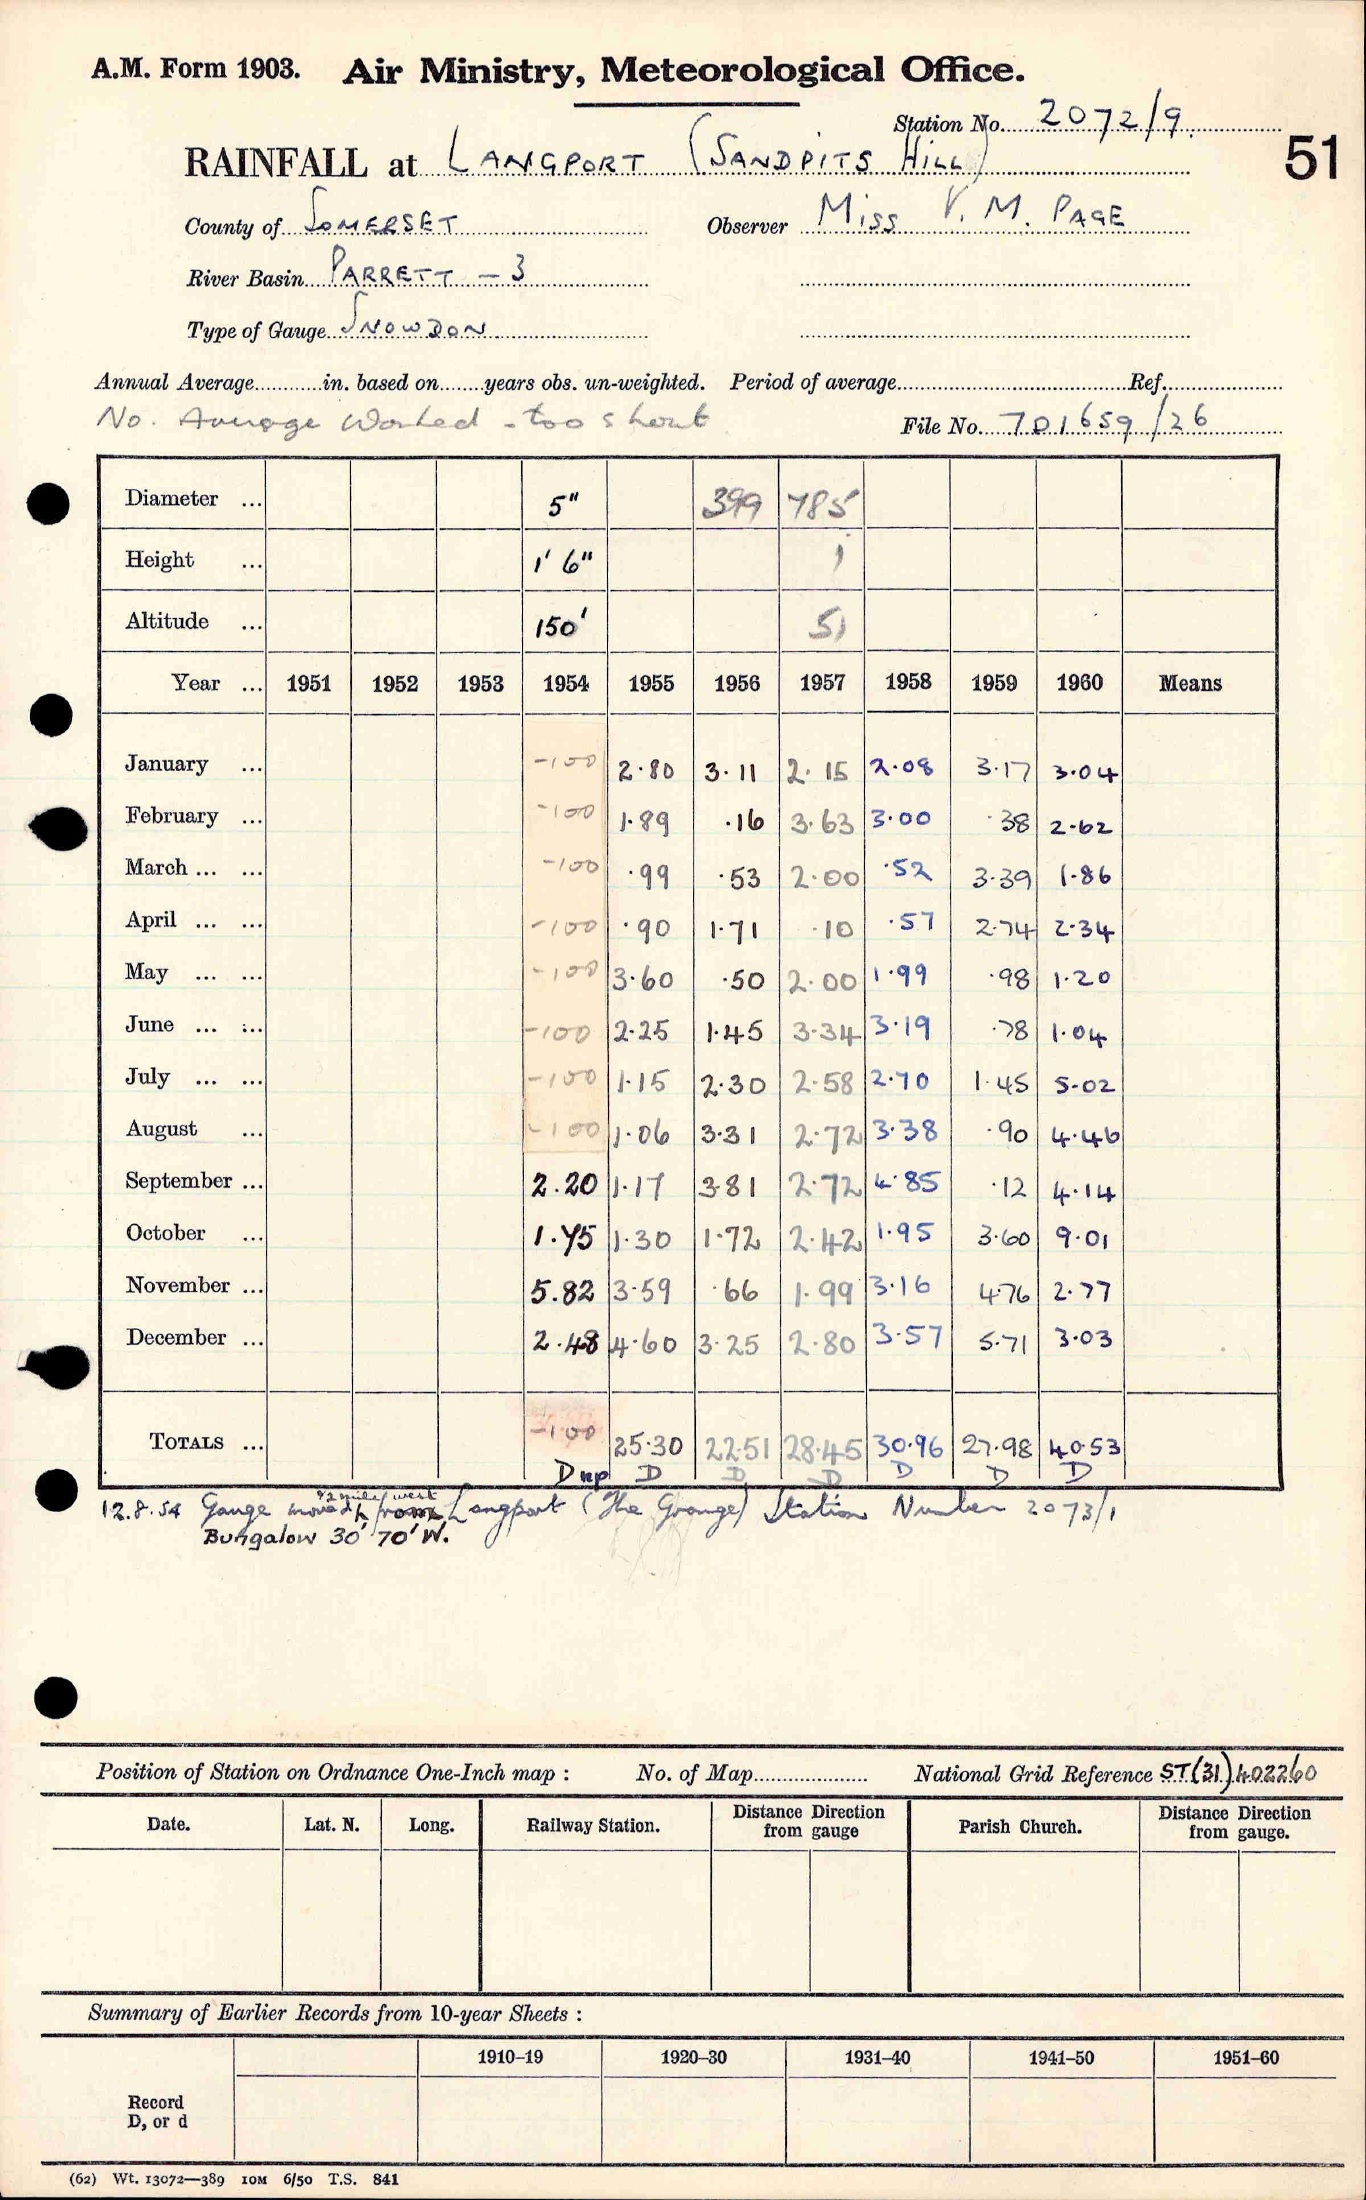 A.M. Form 1903. Air Ministry, Meteorological Office.
Station No. 2072/9.
51
RAINFALL at LANGPORT (SANDPITS HILL)
County of SOMERSET Observer MISS V. M. PAGE
River Basin PARRETT – 3
Type of Gauge SNOWDON
Annual Average in. based on years obs. un-weighted. Period of average Ref.
No. Average Worked - too short File No. 701659/26
Diameter ... 5" 399 785
Height ... 1' 6" 1
Altitude ... 150' 51
Year ... 1951 1952 1953 1954 1955 1956 1957 1958 1959 1960 Means
January ... -100 2.80 3.11 2.15 2.08 3.17 3.04
February ... -100 1.89 .16 3.63 3.00 .38 2.62
March ... ... -100 .99 .53 2.00 .52 3.39 1.86
April ... ... -100 .90 1.71 .10 .57 2.74 2.34
May ... ... -100 3.60 .50 2.00 1.99 .98 1.20
June ... ... -100 2.25 1.45 3.34 3.19 .78 1.04
July ... ... -100 1.15 2.30 2.58 2.70 1.45 5.02
August ... -100 1.06 3.31 2.72 3.38 .90 4.46
September ... 2.20 1.17 3.81 2.72 4.85 .12 4.14
October ... 1.45 1.30 1.72 2.42 1.95 3.60 9.01
November ... 5.82 3.59 .66 1.99 3.16 4.76 2.77
December ... 2.48 4.60 3.25 2.80 3.57 5.71 3.03
TOTALS ... -100 25.30 22.51 28.45 30.96 27.98 40.53
D np D D D D D D
1/2 mile west
12.8.54 Gauge moved from Langport (The Grange) Station Number 2073/1
Bungalow 30' 70' W.
Position of Station on Ordnance One-Inch map : No. of Map National Grid Reference ST(31)402260
Date. Lat. N. Long. Railway Station. Distance Direction from gauge Parish Church. Distance Direction from gauge.
Summary of Earlier Records from 10-year Sheets :
1910–19 1920–30 1931–40 1941–50 1951–60
Record
D, or d
(62) Wt. 13072—389 10M 6/50 T.S. 841